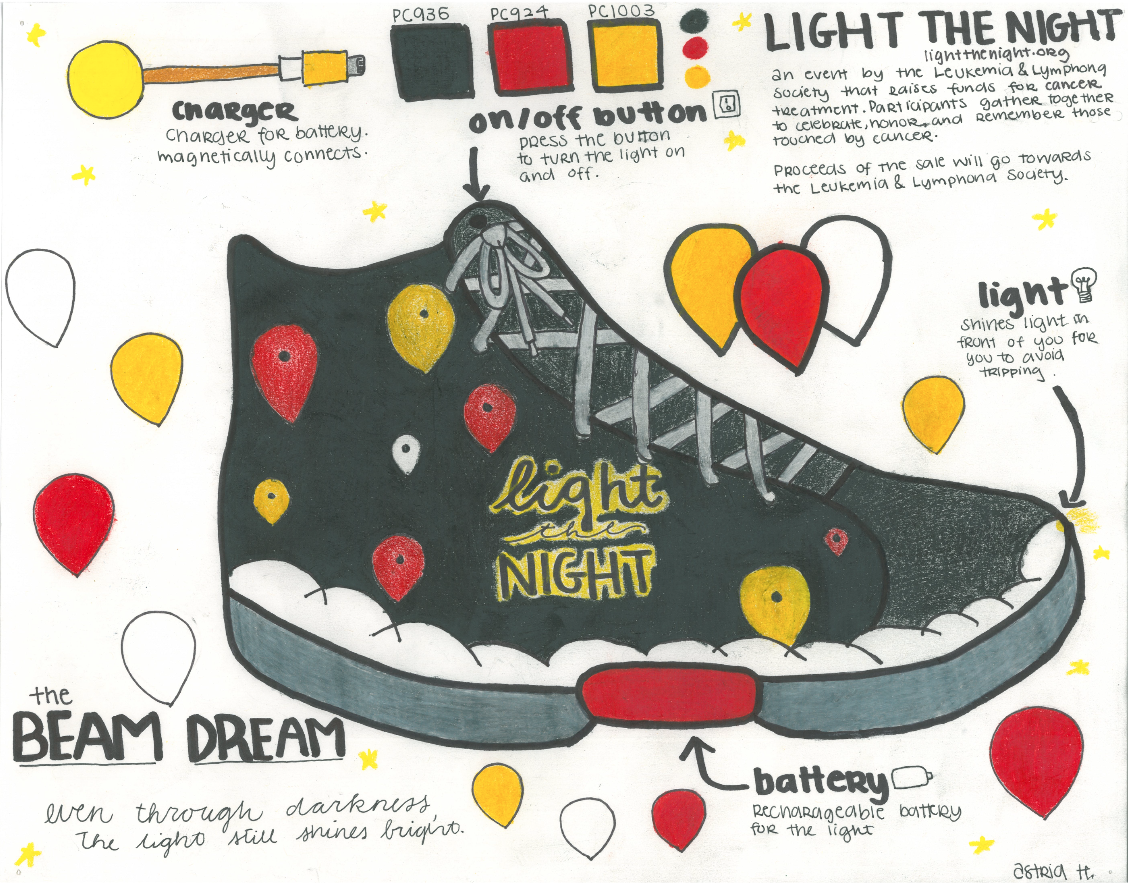 PC936 PC924 PC1003
LIGHT THE NIGHT
lightthenight.org
an event by the Leukemia & Lymphona
Society that raises funds for cancer
treatment. Participants gather together
to celebrate, honor, and remember those
touched by cancer.
Proceeds of the sale will go towards
the Leukemia & Lymphona Society.
charger
charger for battery.
magnetically connects.
on/off button
press the button
to turn the light on
and off.
light
shines light in
front of you for
you to avoid
tripping.
light
the
NIGHT
the
BEAM DREAM
even through darkness,
The light still shines bright.
battery
Rechargeable battery
for the light
astrid H.